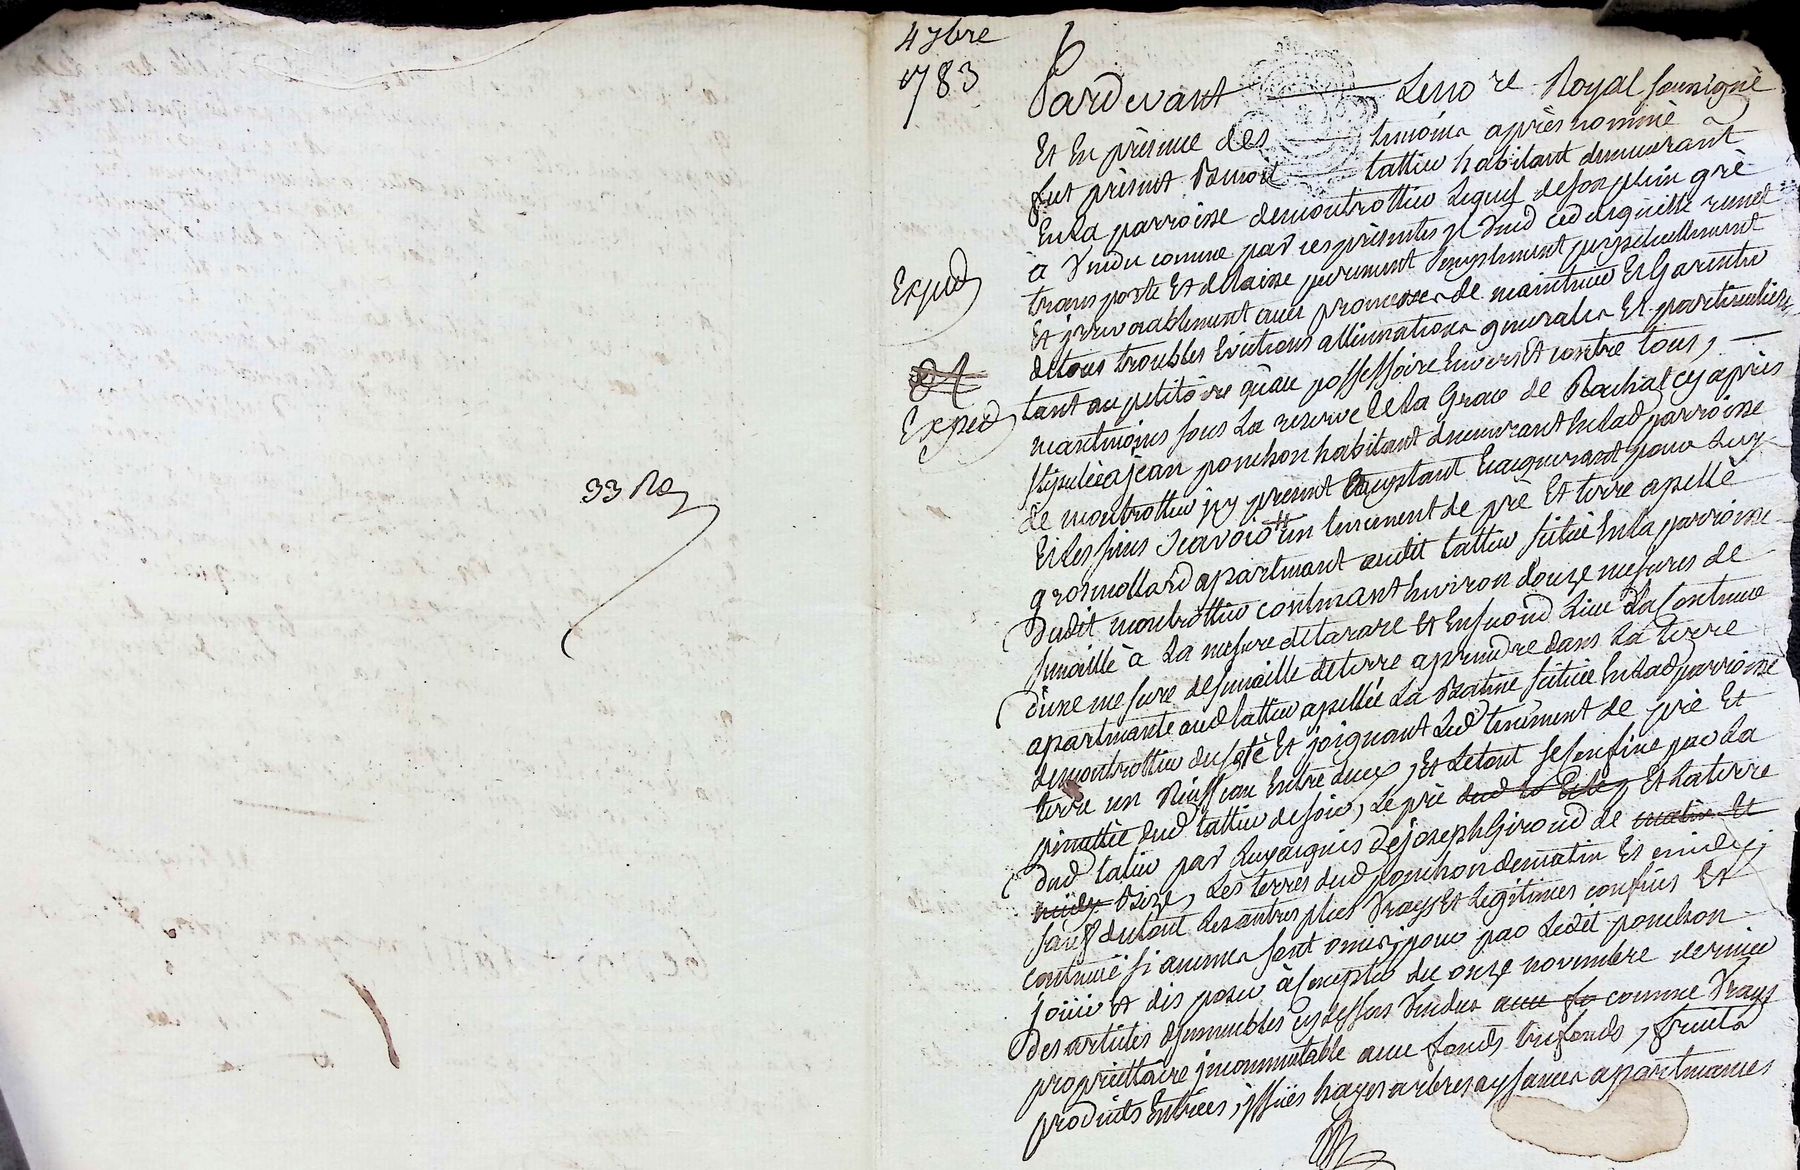 33 Ro
4 7bre
1783
Exped
Exped
Pardevant Le no re Royal soussigné
Et En présence des temoins après nommé
fut présent Benoit lattieu habitant demeurant
En La parroisse de montrottier Lequel de son plein gré
a vendu comme par ces présentes il vend cedde quitte remet
transporte Et delaisse purement simplement perpetuellement
Et irrevocablement avec promesse de maintenir Et Garentir
de tous troubles Evictions allienations generales Et particulieres
tant au petitoire qu'au possessoire Envers Et contre tous,
neantmoins sous La reserve de La Grace de Rachat cy après
stipulée a jean ponchon habitant demeurant En Lad parroisse
de montrottier icy present acceptant Et acquerant pour Luy
Et Les siens scavoir un tenement de pré Et terre apellé
gros mollard apartenant audit lattieu scitué En La parroisse
dudit montrottier contenant Environ douze mesures de
semaille à La mesure de tarare Et En second Lieu La Contenue
d'une mesure de semaille de terre a prendre dans La terre
apartenante aud lattieu apellée La scituée En Lad parroisse
de montrottier du coté Et joignant Led tenement de pré Et
terre un Ruisseau Entre deux, Et Le tout se Confine par La
dud lattieu de soir, Le pré dud Et La terre
dud latieu par Luy acquis de joseph Giroud de matin Et
bize, Les terres dud ponchon de matin Et midy,
sauf du tout Les autres plus vrays Et Legitimes confins Et
contenue si aucuns sont omis, pour par Ledit ponchon
jouir Et disposer à Compter du onze novembre dernier
des articles d'immeubles cy dessus vendus comme vrays
proprietaire incommutable avec fonds trefonds, fruits
produits Entrées, issües hayes arbres aysances apartenances